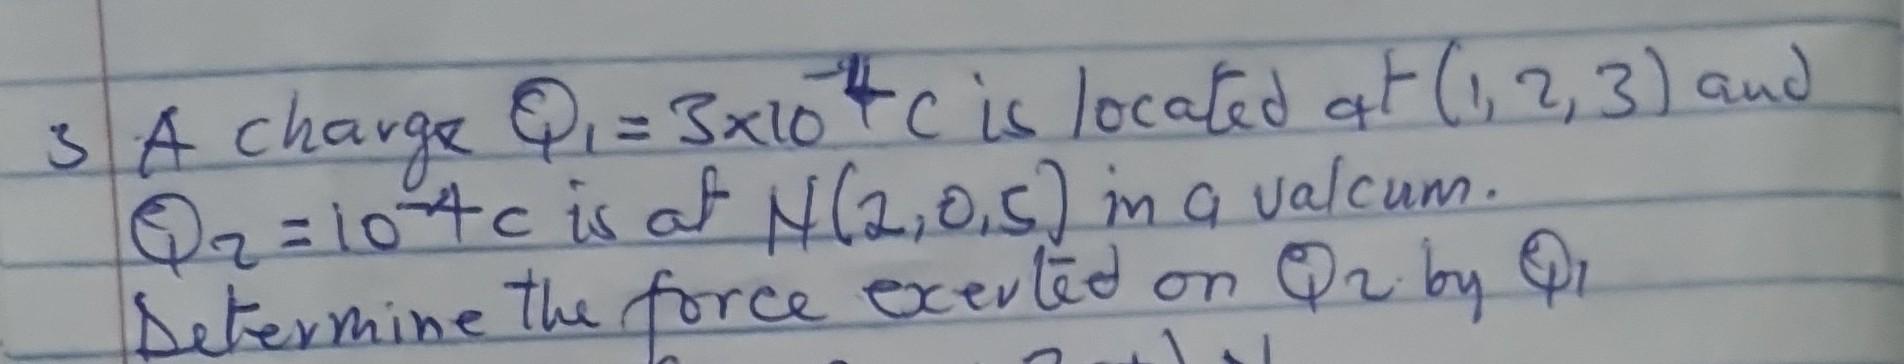 3 A charge Q₁ = 3x10⁻⁴C is located at (1, 2, 3) and
Q₂ = 10⁻⁴C is at N(2,0,5) in a valcum.
Determine the force exerted on Q₂ by Q₁